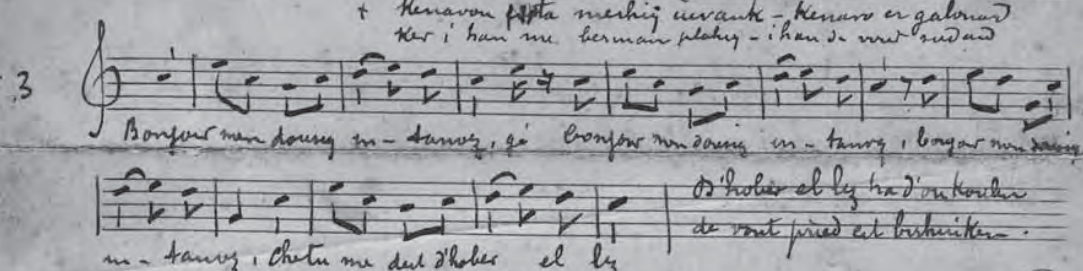 + Kenavou meshig iuvank - Kenavo er galonad
Ker i han me berman - i han de vout sudard
3
Bonjour men dousig in - tanvez, gé bonjour mon dousig in - tanvez, bonjour mon dousig
in - tanvez, Chetu me deit d'hober el lez
D'hober el lez ha d'ou
de vout pried eit birhuiken.